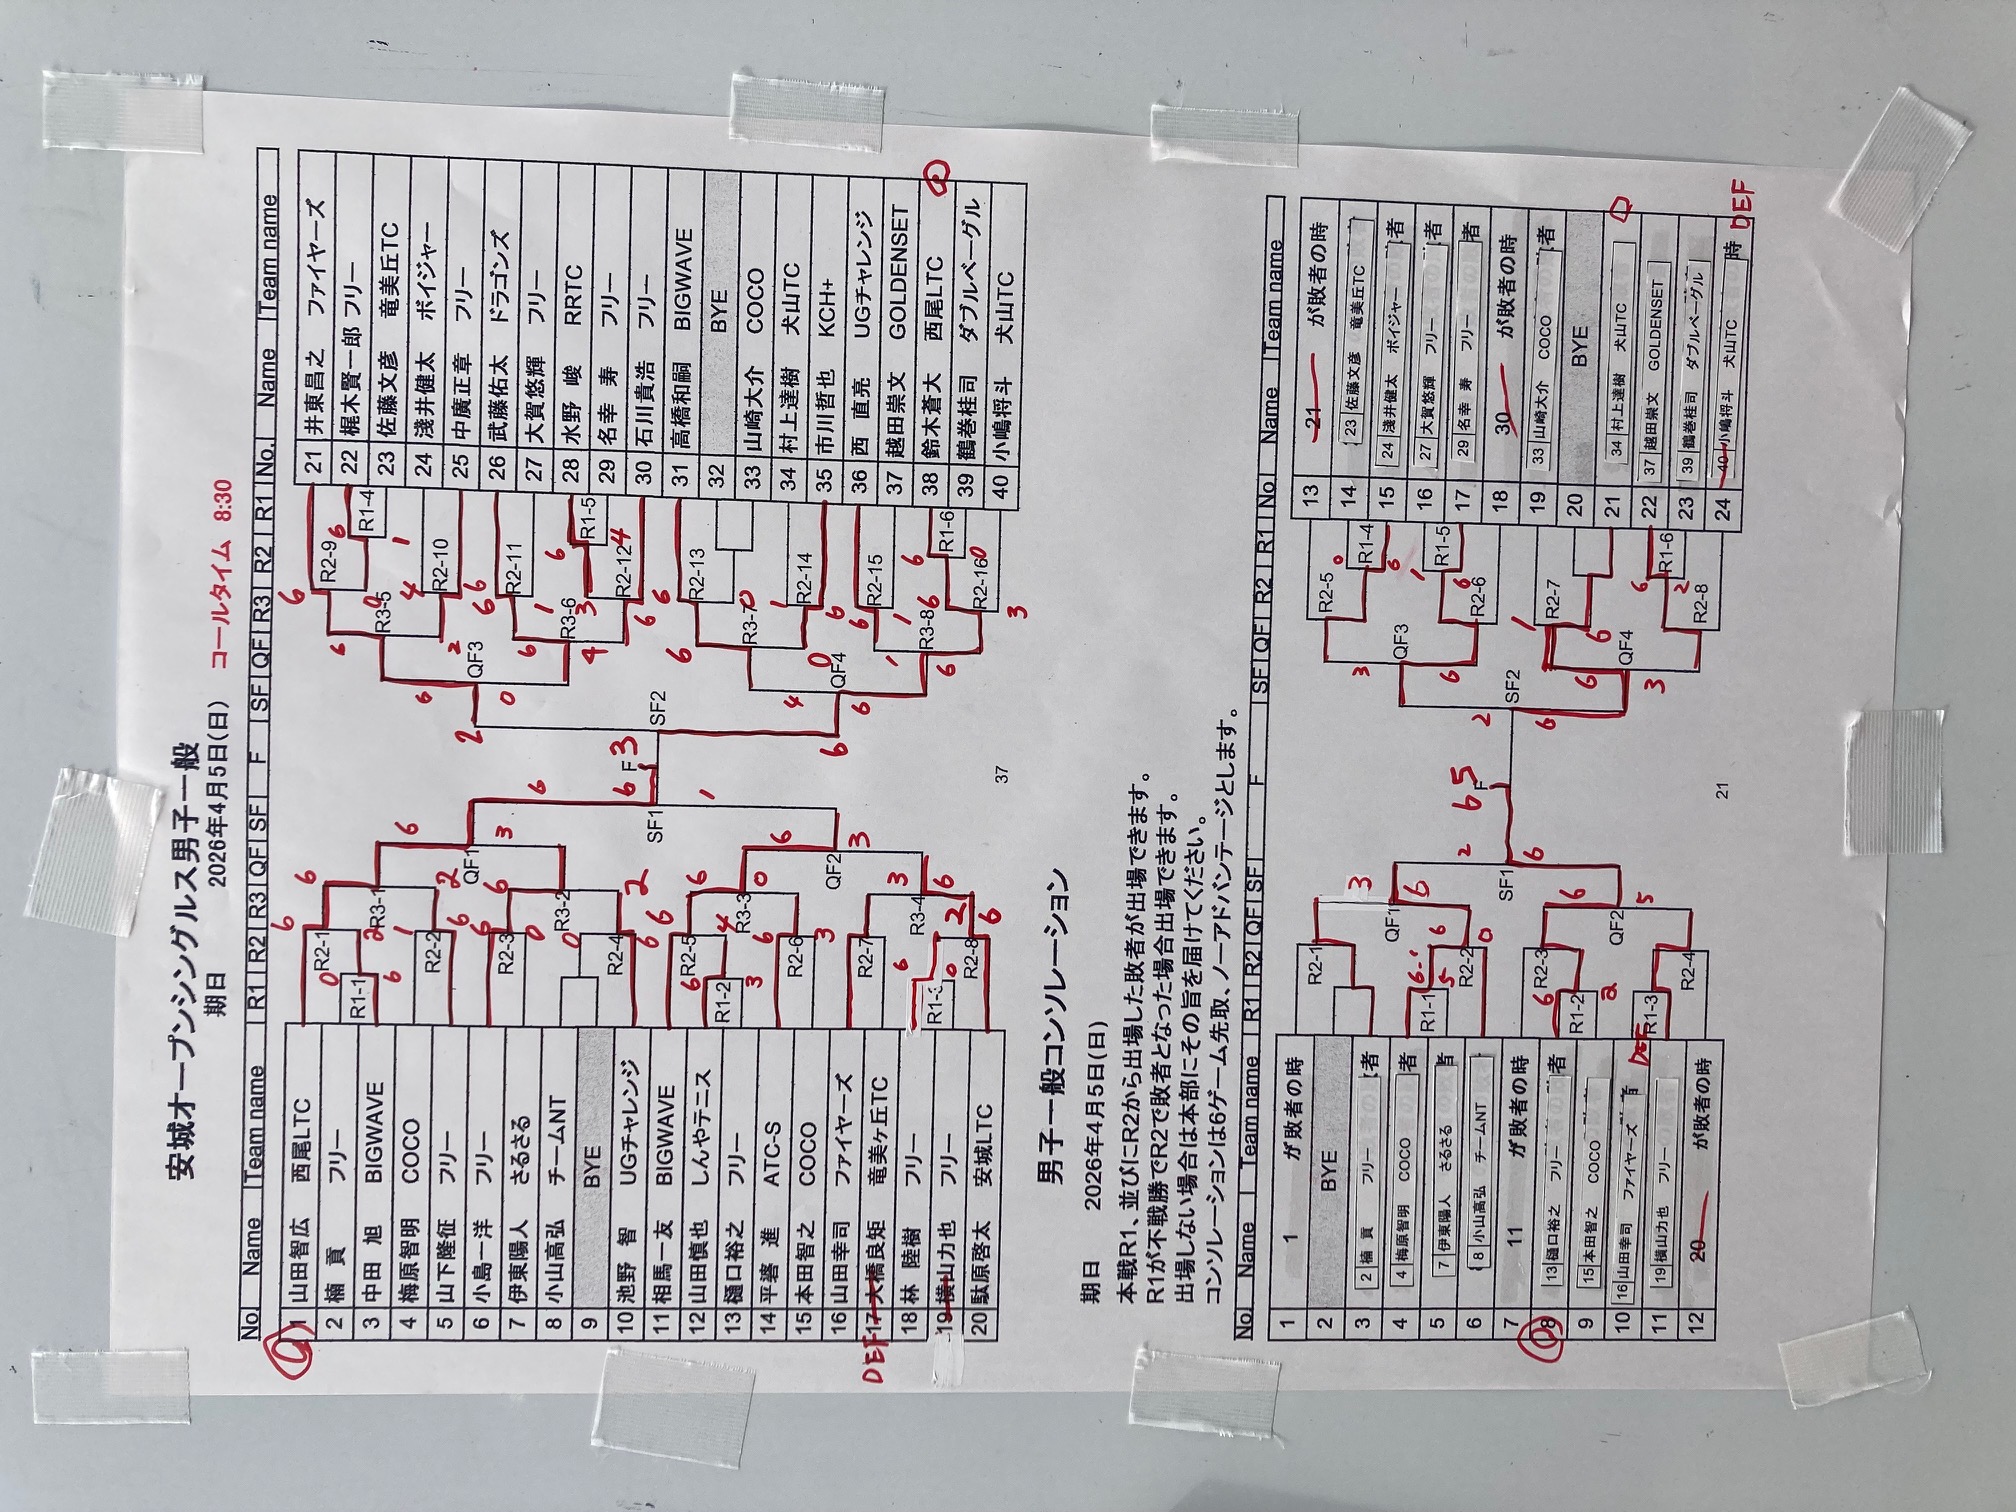 安城オープンシングルス男子一般
期日 2026年4月5日(日) コールタイム 8:30
No. Name Team name R1 R2 R3 QF SF F SF QF R3 R2 R1 No. Name Team name
1 山田智広 西尾LTC
2 楠 貢 フリー
3 中田 旭 BIGWAVE
4 梅原智明 COCO
5 山下隆征 フリー
6 小島一洋 フリー
7 伊東陽人 さるさる
8 小山高弘 チームNT
9 BYE
10 池野 智 UGチャレンジ
11 相馬一友 BIGWAVE
12 山田慎也 しんやテニス
13 樋口裕之 フリー
14 平碆 進 ATC-S
15 本田智之 COCO
16 山田幸司 ファイヤーズ
DEF 17 大橋良矩 竜美ヶ丘TC
18 林 陸樹 フリー
19 横山力也 フリー
20 駄原啓太 安城LTC
21 井東昌之 ファイヤーズ
22 梶木賢一郎 フリー
23 佐藤文彦 竜美丘TC
24 淺井健太 ボイジャー
25 中廣正章 フリー
26 武藤佑太 ドラゴンズ
27 大賀悠輝 フリー
28 水野 峻 RRTC
29 名幸 寿 フリー
30 石川貴浩 フリー
31 高橋和嗣 BIGWAVE
32 BYE
33 山崎大介 COCO
34 村上達樹 犬山TC
35 市川哲也 KCH+
36 西 直亮 UGチャレンジ
37 越田崇文 GOLDENSET
38 鈴木蒼大 西尾LTC
39 鶴巻桂司 ダブルベーグル
40 小嶋将斗 犬山TC
R1-1 R1-2 R1-3
R2-1 R2-2 R2-3 R2-4 R2-5 R2-6 R2-7 R2-8
R3-1 R3-2 R3-3 R3-4
QF1 QF2
SF1
F
SF2
QF3 QF4
R3-5 R3-6 R3-7 R3-8
R2-9 R2-10 R2-11 R2-12 R2-13 R2-14 R2-15 R2-16
R1-4 R1-5 R1-6
37
男子一般コンソレーション
期日 2026年4月5日(日)
本戦R1、並びにR2から出場した敗者が出場できます。
R1が不戦勝でR2で敗者となった場合出場できます。
出場しない場合は本部にその旨を届けてください。
コンソレーションは6ゲーム先取、ノーアドバンテージとします。
No. Name Team name R1 R2 QF SF F SF QF R2 R1 No. Name Team name
1 1 が敗者の時
2 BYE
3 2 楠 貢 フリー 者
4 4 梅原智明 COCO 者
5 7 伊東陽人 さるさる 者
6 8 小山高弘 チームNT
7 11 が敗者の時
8 13 樋口裕之 フリー 者
9 15 本田智之 COCO
10 16 山田幸司 ファイヤーズ DEF
11 19 横山力也 フリー
12 20 が敗者の時
13 21 が敗者の時
14 23 佐藤文彦 竜美丘TC
15 24 淺井健太 ボイジャー 者
16 27 大賀悠輝 フリー 者
17 29 名幸 寿 フリー 者
18 30 が敗者の時
19 33 山崎大介 COCO 者
20 BYE
21 34 村上達樹 犬山TC
22 37 越田崇文 GOLDENSET
23 39 鶴巻桂司 ダブルベーグル
24 40 小嶋将斗 犬山TC 時 DEF
R1-1 R1-2 R1-3
R2-1 R2-2 R2-3 R2-4
QF1 QF2
SF1
F
SF2
QF3 QF4
R2-5 R2-6 R2-7 R2-8
R1-4 R1-5 R1-6
21